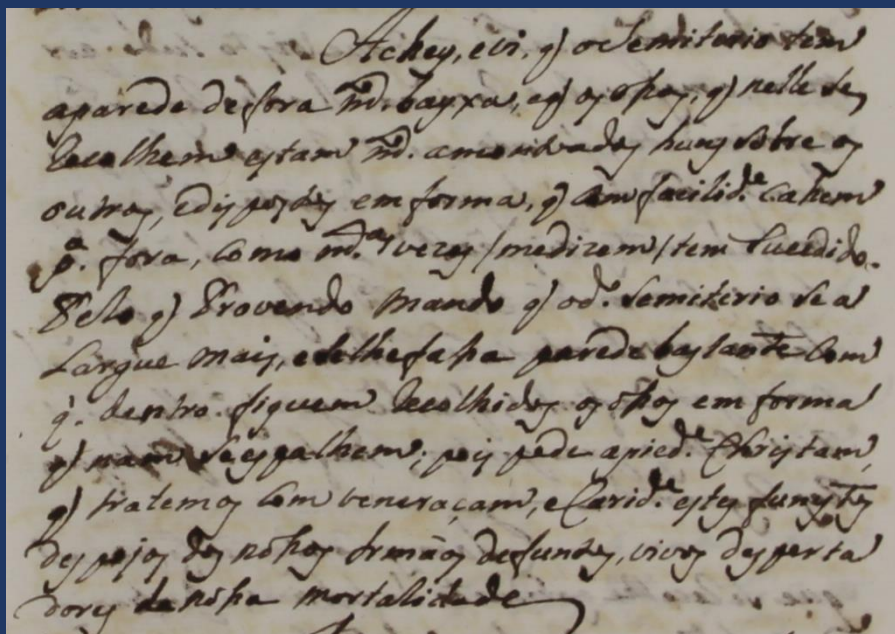 Achey, e vi, q̃ o Semiterio tem
a parede de fora m.^to bayxa, e q̃ os ossos, q̃ nelle se
recolhem estam m.^to amontoados huns sobre os
outros, e dispostos em forma, q̃ com facilid.^e cahem
p.^a fora, como m.^tas vezes /me dizem/ tem sucedido.
Pelo q̃ Provendo Mando q̃ o d.^o Semiterio se a
Largue mais, e se lhe fassa parede bastante com
q̃. dentro fiquem recolhidos os ossos em forma
q̃ nam se espalhem; pois pede a pied.^e Christam,
q̃ tratemos com veneraçam, e Carid.^e estes funestos
despojos dos nossos Irmãos defuntos, vivos desperta
dores da nossa mortalidade